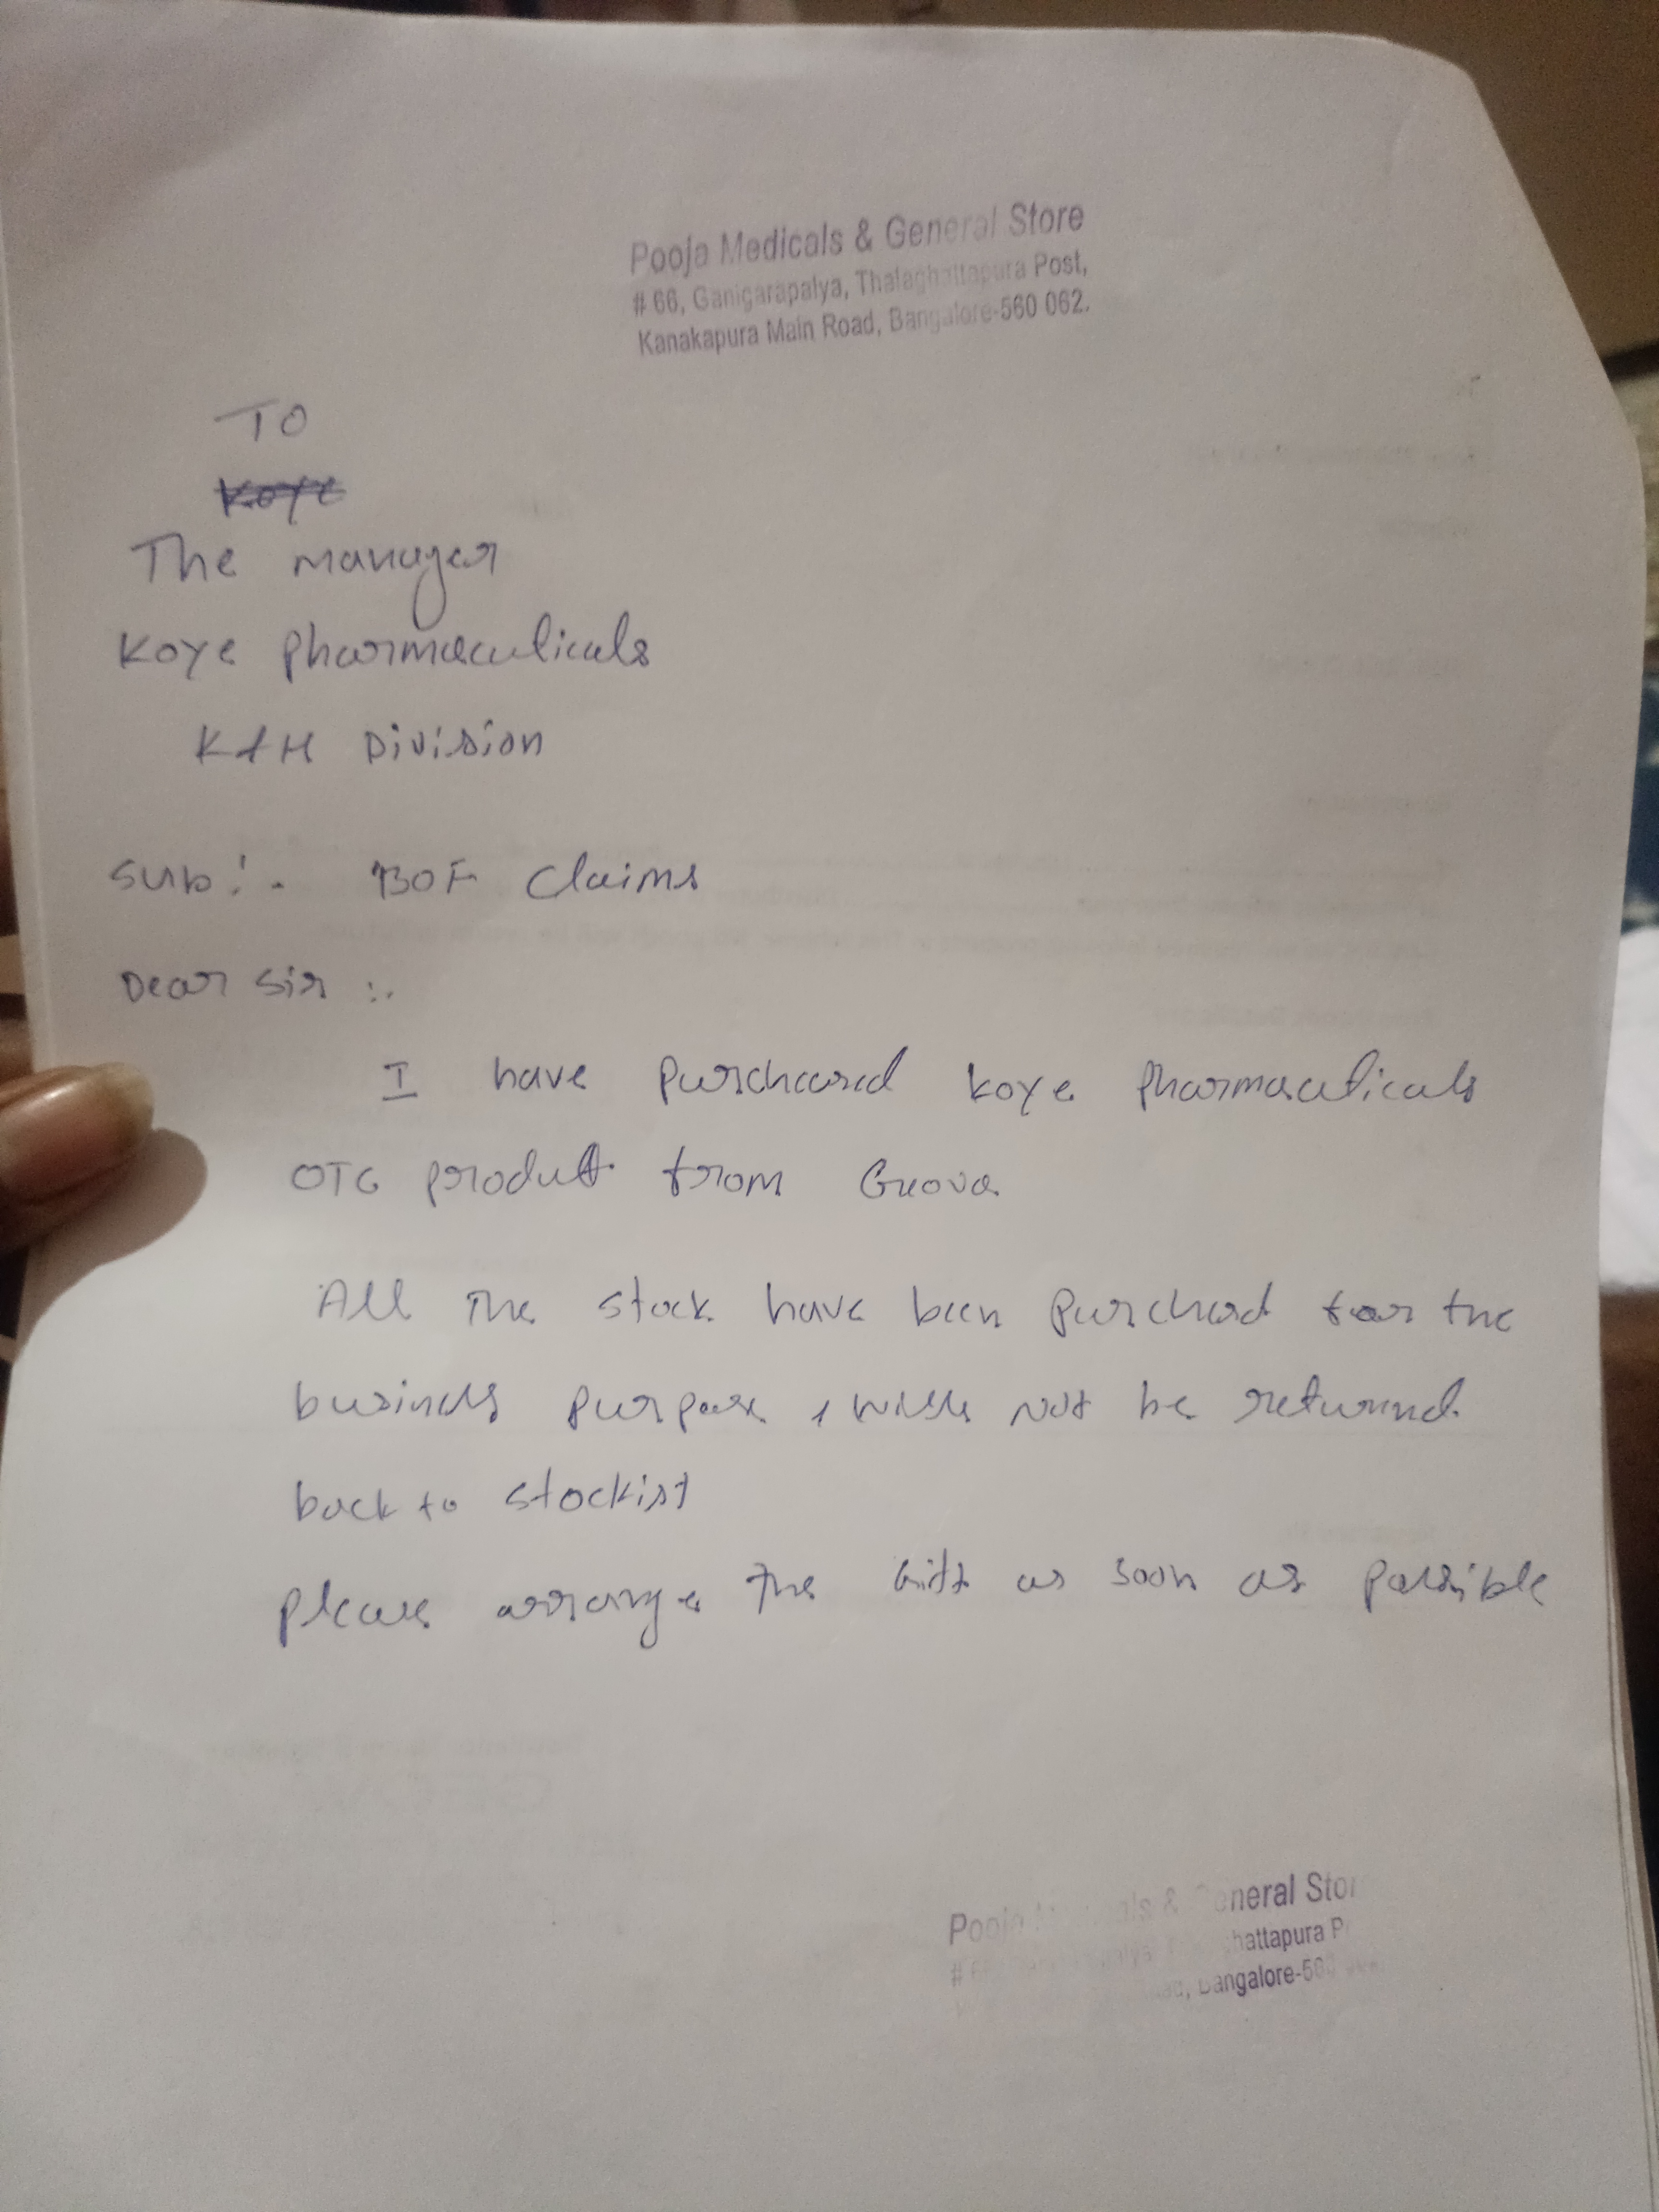 Pooja Medicals & General Store
# 66, Ganigarapalya, Thalaghattapura Post,
Kanakapura Main Road, Bangalore-560 062.
TO
Koye
The manager
Koye Pharmaceuticals
K&H Division
Sub:- BOF Claims
Dear Sir :.
I have purchased Koye Pharmaceuticals
OTC product from
All The stock have been purchased for the
business purpose & will not be returned
back to stockist
Please arrange the Gift as soon as possible
General
hattapura
Bangalore